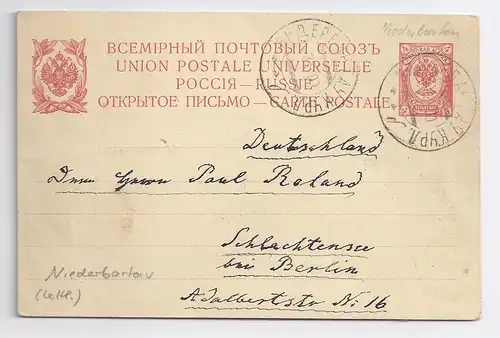 Niederbartau
ВСЕМІРНЫЙ ПОЧТОВЫЙ СОЮЗЪ
UNION POSTALE UNIVERSELLE
РОССІЯ — RUSSIE
ОТКРЫТОЕ ПИСЬМО — CARTE POSTALE
Deutschland
Herrn Paul Roland
Schlachtensee
bei Berlin
Adalbertstr № 16
Niederbartau
(Lettl.)